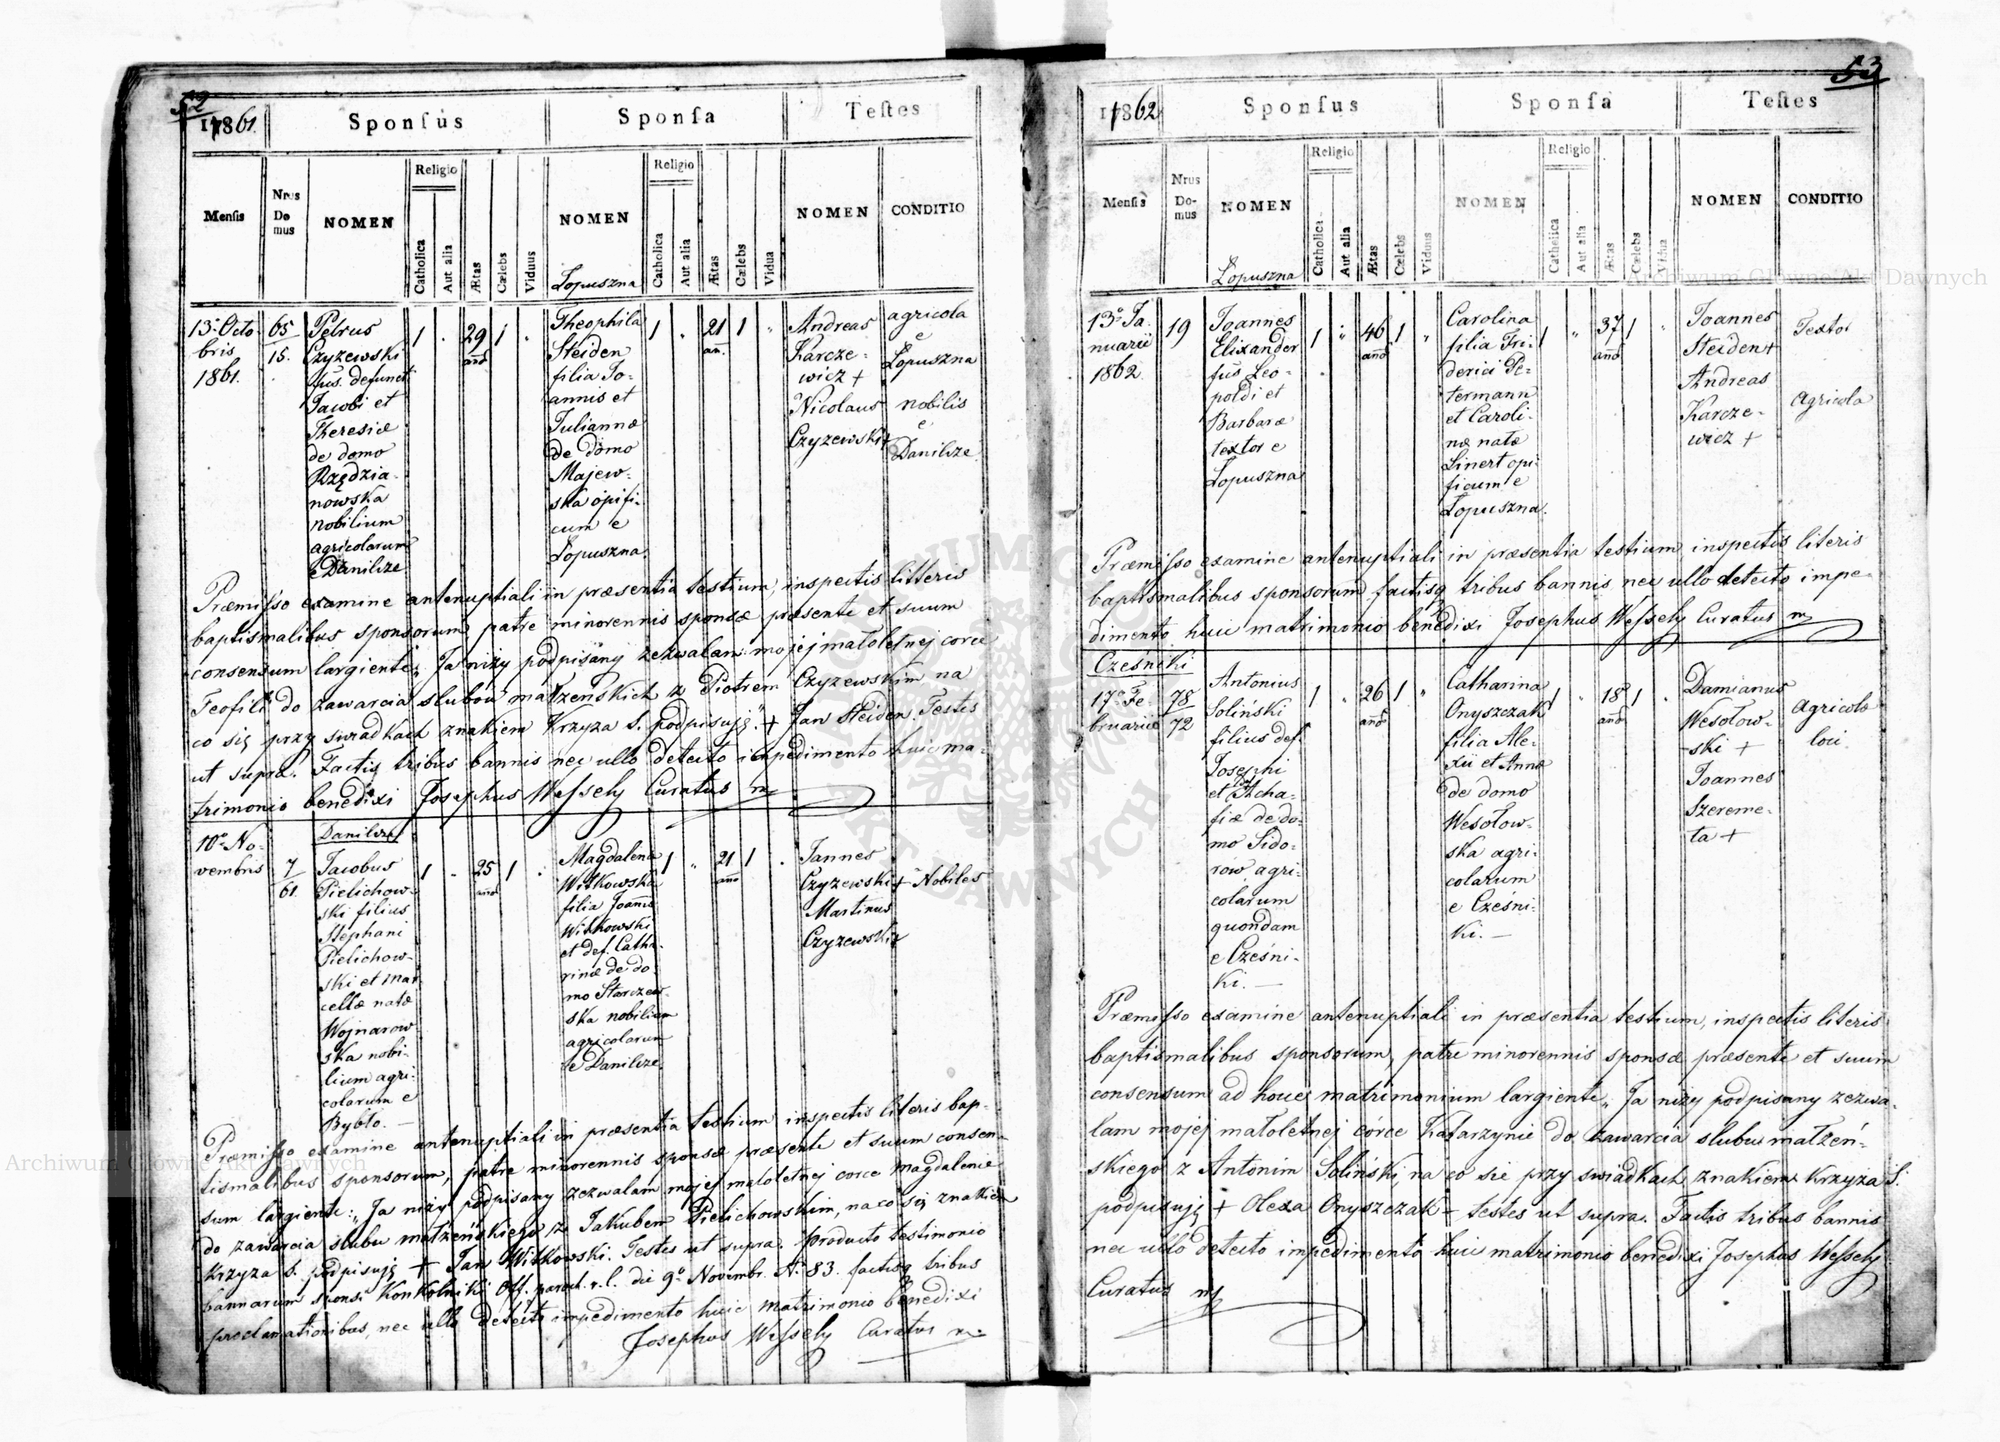 52
1861.
Sponsus
Sponsa
Testes
Mensis
Nrus Domus
NOMEN
Religio
Catholica
Aut alia
Ætas
Cælebs
Viduus
NOMEN
Łopuszna
Religio
Catholica
Aut alia
Ætas
Cælebs
Vidua
NOMEN
CONDITIO
13. Octo
bris
1861.
65
15.
Petrus
Czyżewski
fius. defunct
Jacobi et
Theresiæ
de domo
Rzędzia-
nowska
nobilium
agricolarum
e Danilcze
1
29
1
Theophila
Steiden
filia Jo-
annis et
Juliannæ
de domo
Majew-
ska opifi-
cum e
Łopuszna.
1
21
an.
1
Andreas
Karcze-
wicz +
Nicolaus
Czyżewski +
agricola
e
Łopuszna
nobilis
e
Danilcze
Præmisso examine antenuptiali in præsentia testium, inspectis litteris
baptismalibus sponsorum, patre minorennis sponsæ præsente et suum
consensum largiente „Ja niży podpisany zezwalam mojej małoletnej corce
Teofili do zawarcia slubow małżeńskich z Piotrem Czyżewskim na
co się przy swiadkach znakiem Krzyża S. podpisuję" + Jan Steiden. Testes
ut supra. Factisq tribus bannis nec ullo detecto impedimento huic ma-
trimonio benedixi Josephus Wessely Curatus
10º No-
vembris
7
61.
Danilcze
Jacobus
Pielichow-
ski filius
Stephani
Pielichow-
ski et Mar
cellæ natæ
Wojnarow
ska nobi-
lium agri-
colarum e
Bybło.
1
25
1
Magdalena
Witkowska
filia Joanis
Witkowski
et def. Catha-
rinæ de do
mo Starczew-
ska nobilium
agricolarum
e Danilcze.
1
21
1
Jannes
Czyżewski +
Martinus
Czyżewski +
Nobiles
Præmisso examine antenuptiali in præsentia testium inspectis literis bap-
tismalibus sponsorum, patre minorennis sponsæ præsente et suum consen-
sum largiente: „Ja niży podpisany zezwalam mojej małoletnej corce Magdalenie
do zawarcia slubu małżeńskiego ze Jakubem Pielichowskim, na co się znakiem
Krzyża S. podpisuję + Jan Witkowski. Testes ut supra. Producto testimonio
bannarum sponsi Konkolniki Off. paroch. r. l. die 9º Novembr. Nº 83. factisq tribus
proclamationibus, nec ullo detecto impedimento huic matrimonio benedixi
Josephus Wessely Curatus
53
1862
Sponsus
Sponsa
Testes
Mensis
Nrus Do-
mus
NOMEN
Łopuszna
Religio
Catholica
Aut alia
Ætas
Cælebs
Viduus
NOMEN
Religio
Catholica
Aut alia
Ætas
Cælebs
Vidua
NOMEN
CONDITIO
13º Ja
nuarii
1862.
19
Joannes
Elixander
fius Leo-
poldi et
Barbaræ
textor e
Łopuszna
1
46
1
Carolina
filia Fri-
derici Pe-
termann
et Caroli-
næ natæ
Linert opi-
ficum e
Łopuszna.
1
37
1
Joannes
Steiden +
Andreas
Karcze-
wicz +
Textor
Agricola
Præmisso examine antenuptiali in præsentia testium inspectis literis
baptismalibus sponsorum factisq tribus bannis nec ullo detecto impe-
dimento huic matrimonio benedixi Josephus Wessely Curatus
Cześniki
17º Fe-
bruarii
78
72
Antonius
Soliński
filius def.
Josephi
et Acha-
fiæ de do-
mo Sido-
row agri-
colarum
quondam
e Cześni-
ki.
1
26
1
Catharina
Onyszczak
filia Ale-
xii et Annæ
de domo
Wesołow-
ska agri-
colarum
e Cześni-
ki.
1
18
1
Damianus
Wesołow-
ski +
Joannes
Szereme-
ta +
Agricolæ
loci
Præmisso examine antenuptiali in præsentia testium, inspectis literis
baptismalibus sponsorum, patre minorennis sponsæ præsente et suum
consensum ad hocce matrimonium largiente „Ja niży podpisany zezwa-
lam mojej małoletnej córce Katarzynie do zawarcia slubu małżeń-
skiego z Antonim Soliński na co sie przy swiadkach znakiem Krzyża S.
podpisuję + Olexa Onyszczak - testes ut supra. Factis tribus bannis
nec ullo detecto impedimento huic matrimonio benedixi Josephus Wessely
Curatus
Archiwum Główne Akt Dawnych
Archiwum Główne Akt Dawnych
ARCHIWUM GŁÓWNE AKT DAWNYCH